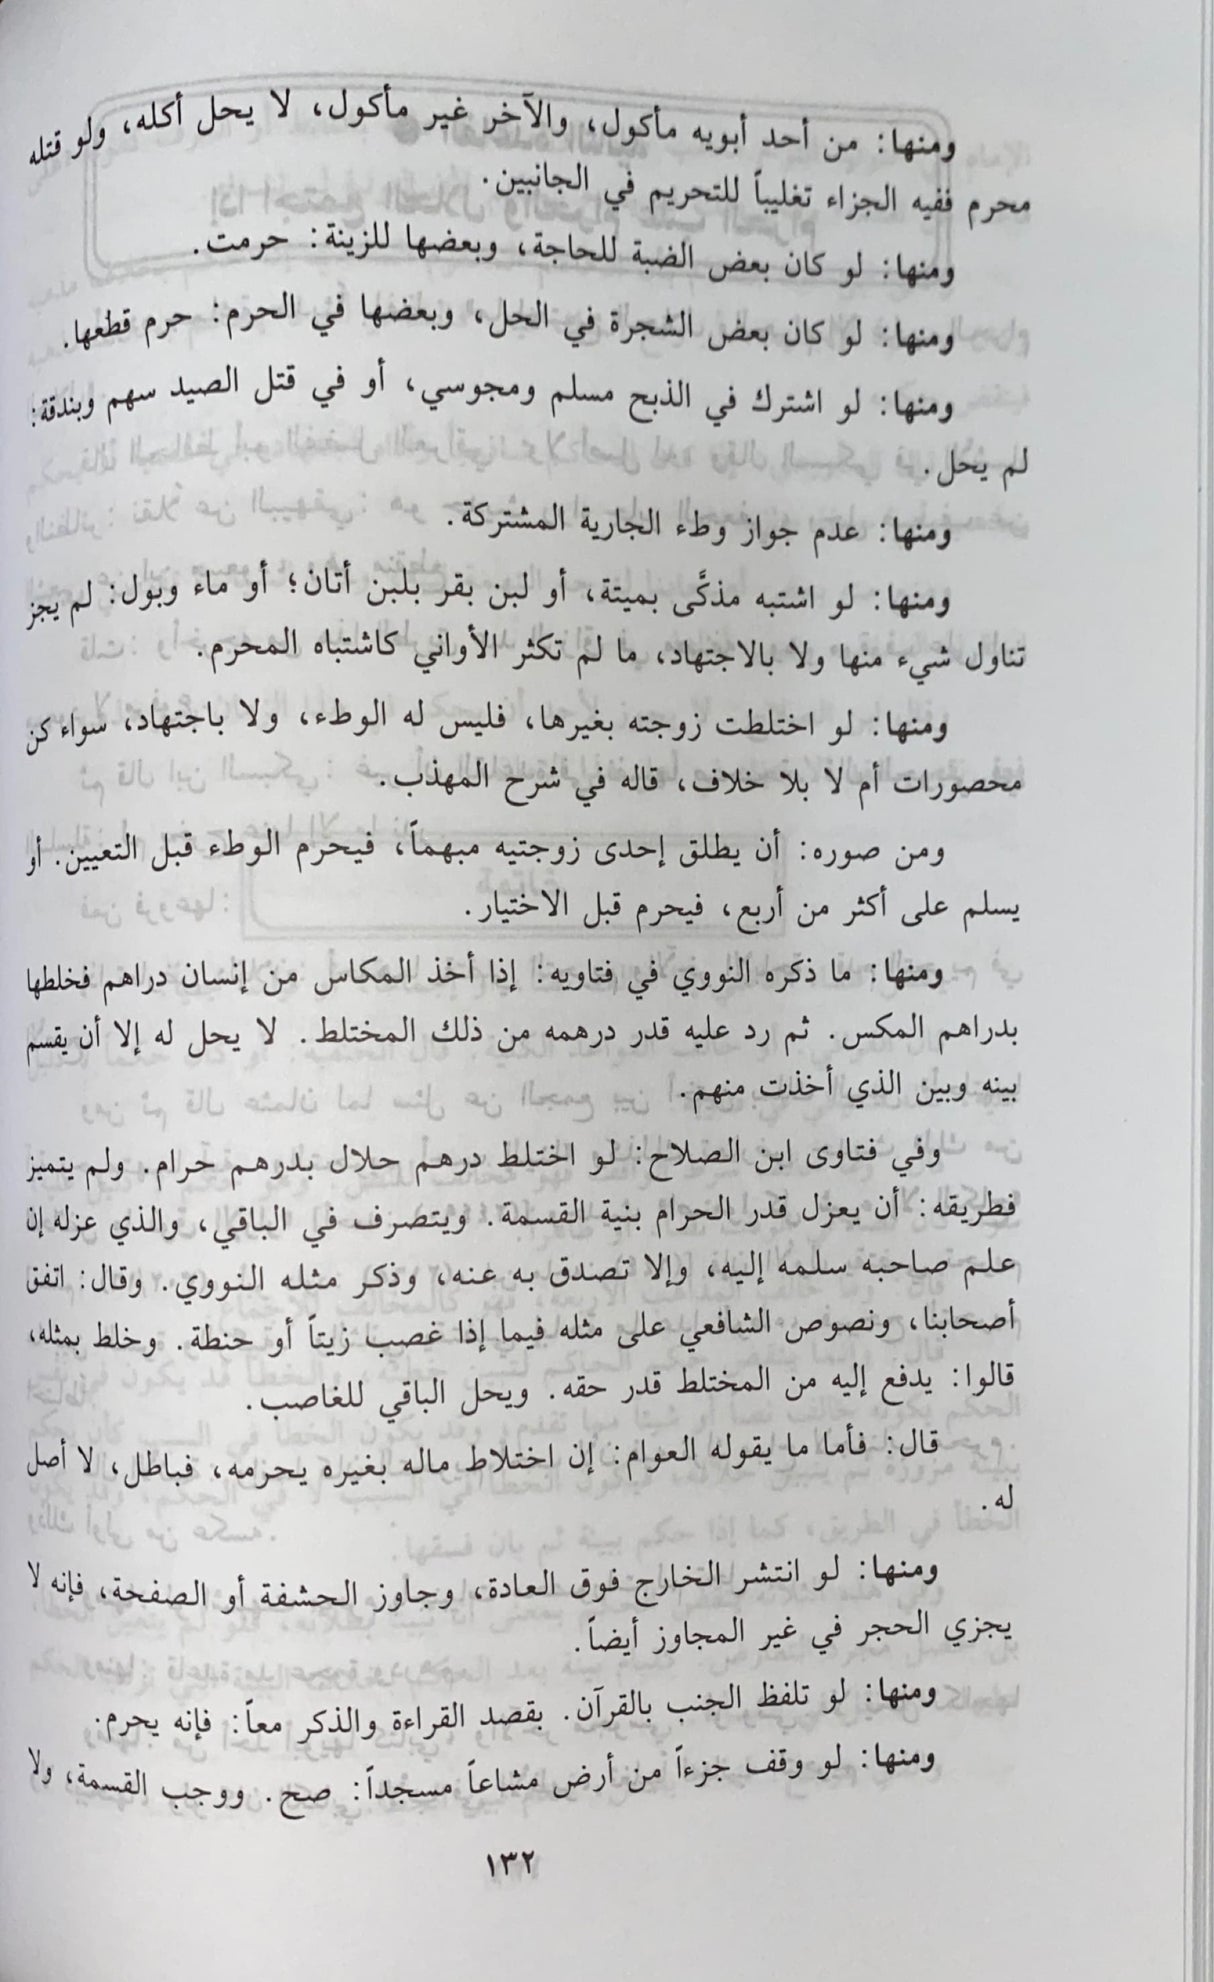 ومنها: من أحد أبويه مأكول، والآخر غير مأكول، لا يحل أكله، ولو قتله
محرم ففيه الجزاء تغليباً للتحريم في الجانبين.
ومنها: لو كان بعض الضبة للحاجة، وبعضها للزينة: حرمت.
ومنها: لو كان بعض الشجرة في الحل، وبعضها في الحرم: حرم قطعها.
ومنها: لو اشترك في الذبح مسلم ومجوسي، أو في قتل الصيد سهم وبندقة:
لم يحل.
ومنها: عدم جواز وطء الجارية المشتركة.
ومنها: لو اشتبه مذكًّى بميتة، أو لبن بقر بلبن أتان؛ أو ماء وبول: لم يجز
تناول شيء منها ولا بالاجتهاد، ما لم تكثر الأواني كاشتباه المحرم.
ومنها: لو اختلطت زوجته بغيرها، فليس له الوطء، ولا باجتهاد، سواء كن
محصورات أم لا بلا خلاف، قاله في شرح المهذب.
ومن صوره: أن يطلق إحدى زوجتيه مبهماً، فيحرم الوطء قبل التعيين. أو
يسلم على أكثر من أربع، فيحرم قبل الاختيار.
ومنها: ما ذكره النووي في فتاويه: إذا أخذ المكاس من إنسان دراهم فخلطها
بدراهم المكس. ثم رد عليه قدر درهمه من ذلك المختلط. لا يحل له إلا أن يقسم
بينه وبين الذي أخذت منهم.
وفي فتاوى ابن الصلاح: لو اختلط درهم حلال بدرهم حرام. ولم يتميز
فطريقه: أن يعزل قدر الحرام بنية القسمة. ويتصرف في الباقي، والذي عزله إن
علم صاحبه سلمه إليه، وإلا تصدق به عنه، وذكر مثله النووي. وقال: اتفق
أصحابنا، ونصوص الشافعي على مثله فيما إذا غصب زيتاً أو حنطة. وخلط بمثله،
قالوا: يدفع إليه من المختلط قدر حقه. ويحل الباقي للغاصب.
قال: فأما ما يقوله العوام: إن اختلاط ماله بغيره يحرمه، فباطل، لا أصل
له.
ومنها: لو انتشر الخارج فوق العادة، وجاوز الحشفة أو الصفحة، فإنه لا
يجزي الحجر في غير المجاوز أيضاً.
ومنها: لو تلفظ الجنب بالقرآن. بقصد القراءة والذكر معاً: فإنه يحرم.
ومنها: لو وقف جزءاً من أرض مشاعاً مسجداً: صح. ووجب القسمة، ولا
١٣٢